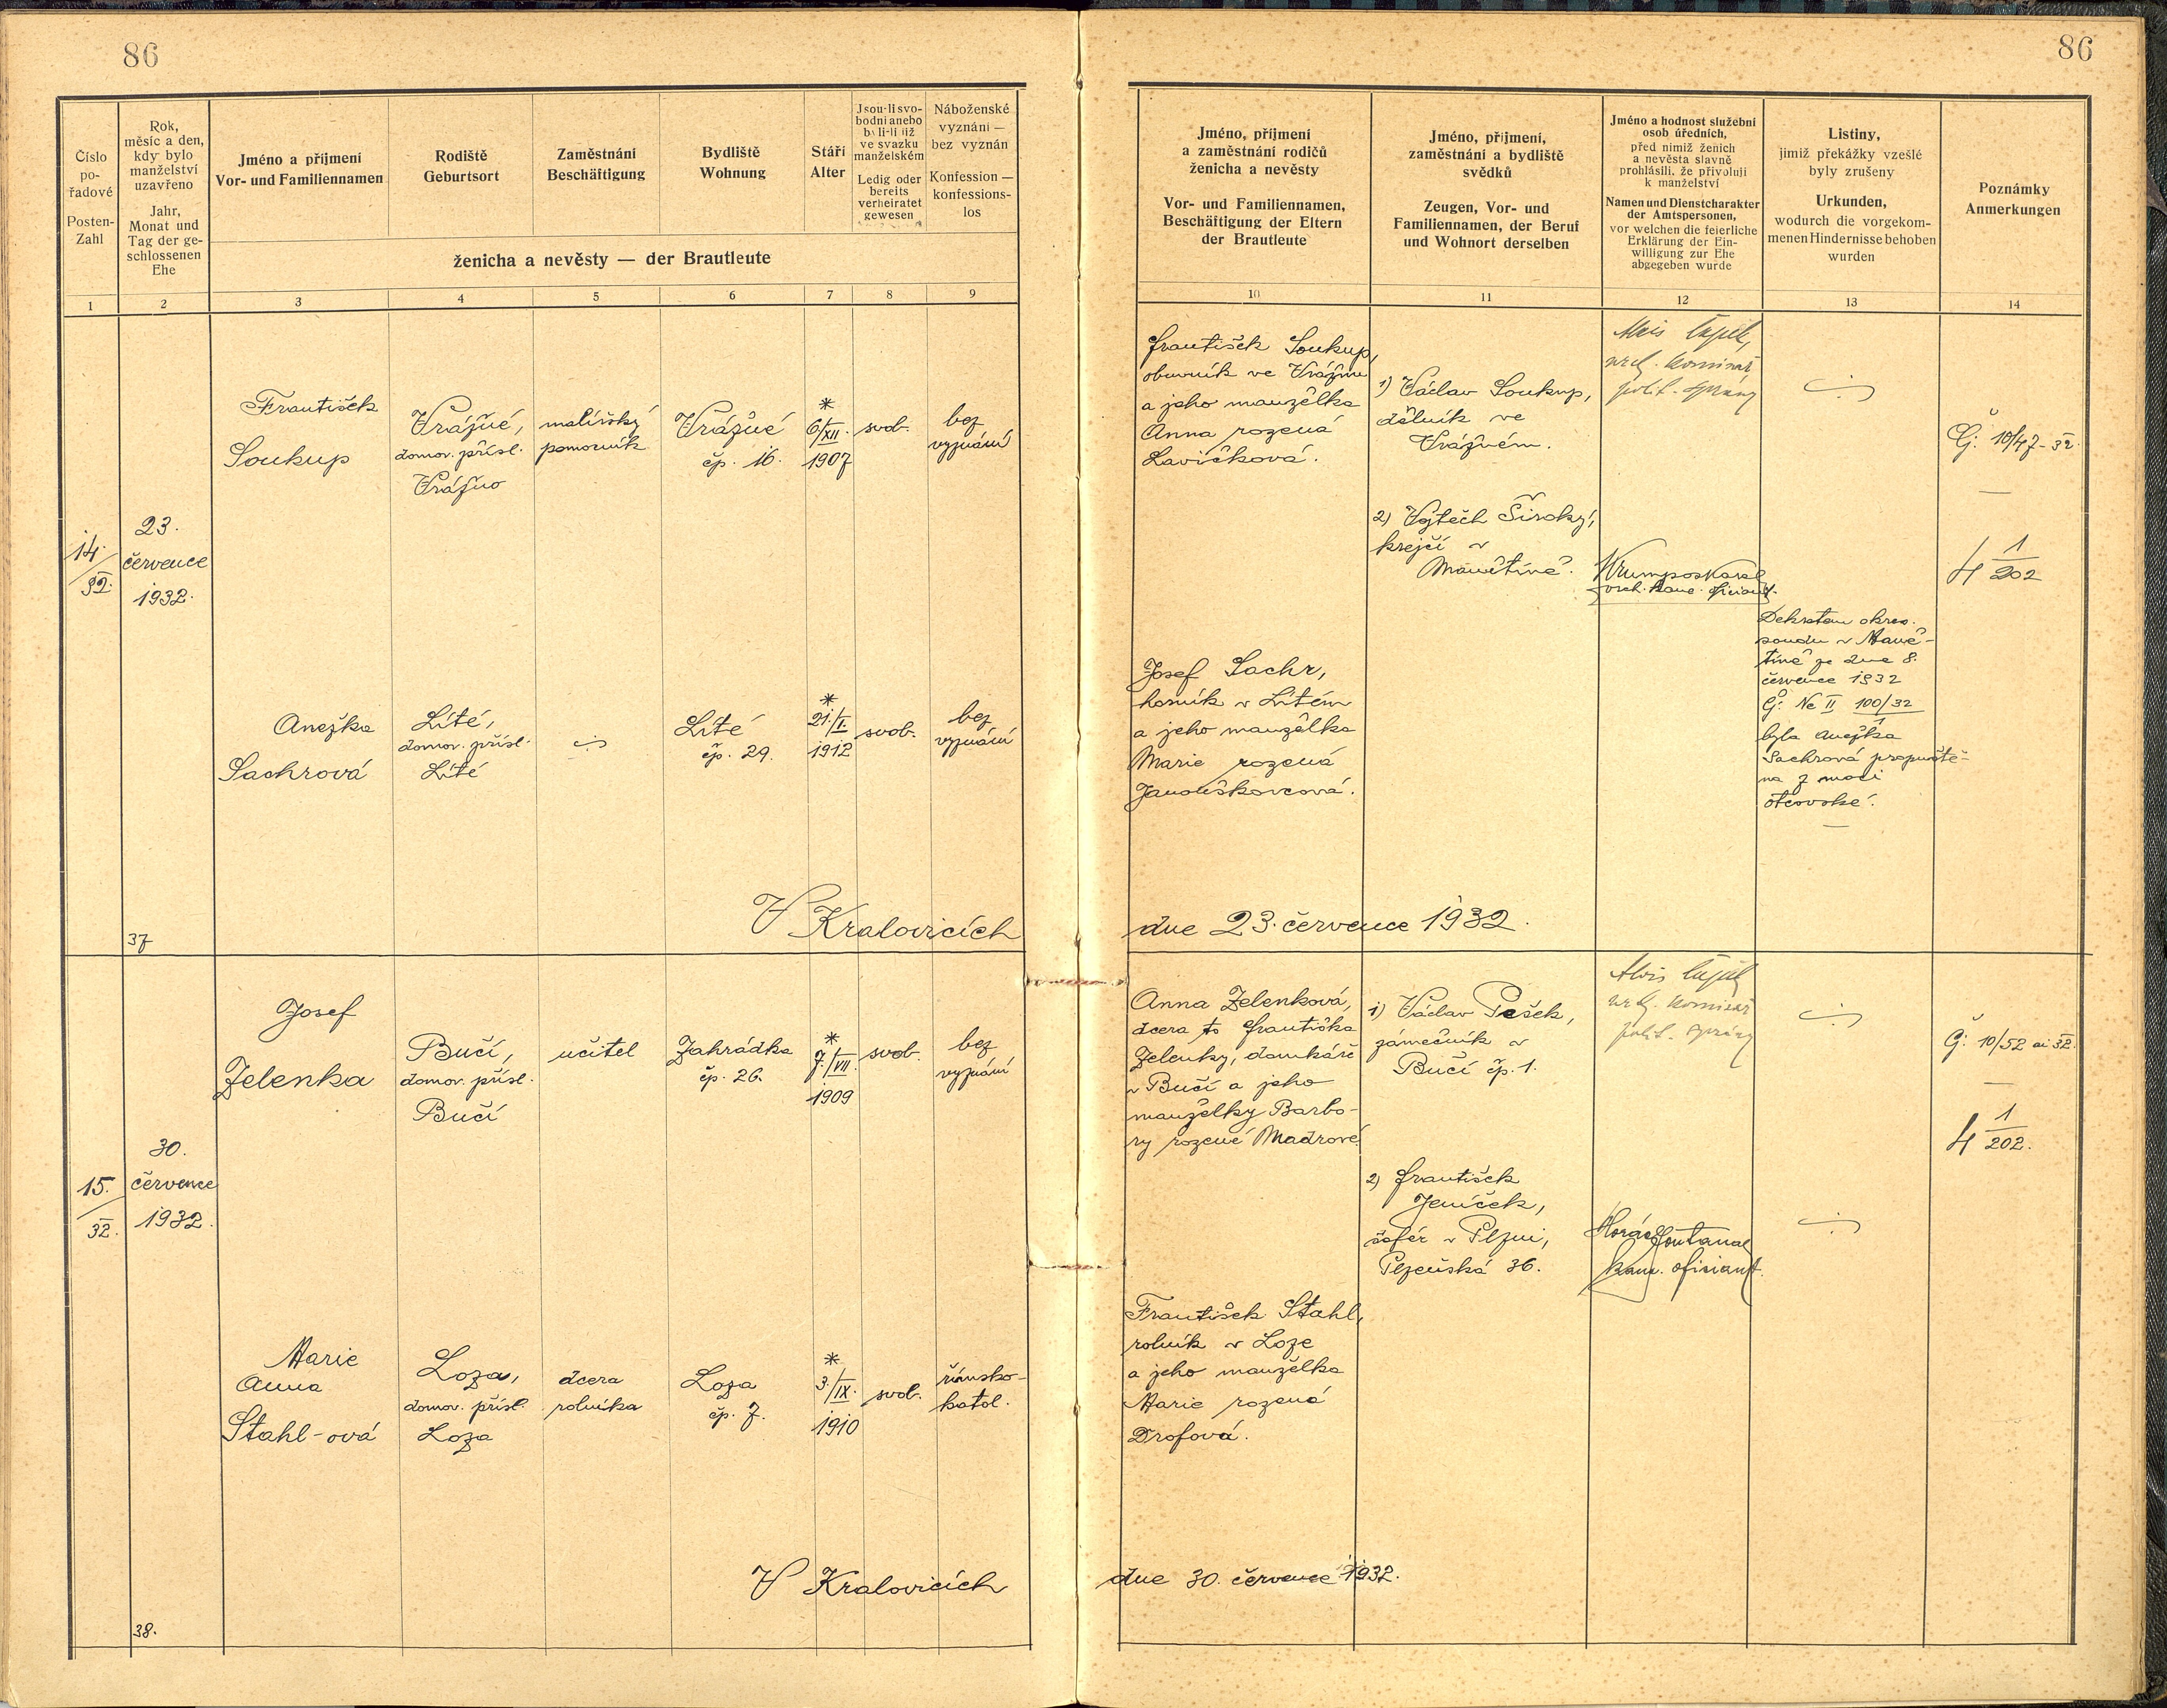 86
86
Číslo
po-
řadové
Posten-
Zahl
Rok,
měsíc a den,
kdy bylo
manželství
uzavřeno
Jahr,
Monat und
Tag der ge-
schlossenen
Ehe
Jméno a příjmení
Vor- und Familiennamen
Rodiště
Geburtsort
Zaměstnání
Beschäftigung
Bydliště
Wohnung
Stáří
Alter
Jsou-li svo-
bodni anebo
byli-li již
ve svazku
manželském
Ledig oder
bereits
verheiratet
gewesen
Náboženské
vyznání —
bez vyznán
Konfession —
konfessions-
los
ženicha a nevěsty — der Brautleute
Jméno, příjmení
a zaměstnání rodičů
ženicha a nevěsty
Vor- und Familiennamen,
Beschäftigung der Eltern
der Brautleute
Jméno, příjmení,
zaměstnání a bydliště
svědků
Zeugen, Vor- und
Familiennamen, der Beruf
und Wohnort derselben
Jméno a hodnost služební
osob úředních,
před nimiž ženich
a nevěsta slavně
prohlásili, že přivolují
k manželství
Namen und Dienstcharakter
der Amtspersonen,
vor welchen die feierliche
Erklärung der Ein-
willigung zur Ehe
abgegeben wurde
Listiny,
jimiž překážky vzešlé
byly zrušeny
Urkunden,
wodurch die vorgekom-
menen Hindernisse behoben
wurden
Poznámky
Anmerkungen
1 2 3 4 5 6 7 8 9 10 11 12 13 14
14.
32.
23.
července
1932.
František
Soukup
Vrážné,
domov. přísl.
Vrážno
malířský
pomocník
Vrážné
čp. 16.
*
6./XII.
1907
svob.
bez
vyznání
František Soukup,
obuvník ve Vrážnu
a jeho manželka
Anna rozená
Lavičková.
1) Václav Soukup,
dělník ve
Vrážném.
2) Vojtěch Široký,
krejčí v
Manětíně.
Alois
polit. správy
Č: 10/47-32.
4 1
202
Anežka
Sachrová
Líté,
domov. přísl.
Líté
Líté
čp. 29.
*
21./I.
1912
svob.
bez
vyznání
Josef Sachr,
horník v Lítém
a jeho manželka
Marie rozená
Janouškovcová.
Dekretem okres.
soudu v Mané-
tíně ze dne 8.
července 1932
Č: Nc II 100/32
1
byla Anežka
Sachrová propuště-
na z moci
otcovské.
V Kralovicích
dne 23. července 1932.
37
15.
32.
30.
července
1932.
Josef
Zelenka
Bučí,
domov. přísl.
Bučí
učitel
Zahrádka
čp. 26.
*
7./VII.
1909
svob.
bez
vyznání
Anna Zelenková,
dcera to Františka
Zelenky, domkáře
v Bučí a jeho
manželky Barbo-
ry rozené Madrové.
1) Václav Pešek,
zámečník v
Bučí čp. 1.
2) František
Jeníček,
šofér v Plzni,
Plzeňská 36.
Alois
polit. správy
kanc. oficiant.
Č: 10/52 ai 32.
4 1
202.
Marie
Anna
Stahl-ová
Loza,
domov. přísl.
Loza
dcera
rolníka
Loza
čp. 7.
*
3./IX.
1910
svob.
římsko-
katol.
František Stahl,
rolník v Loze
a jeho manželka
Marie rozená
Drofová.
V Kralovicích
dne 30. července 1932.
38.